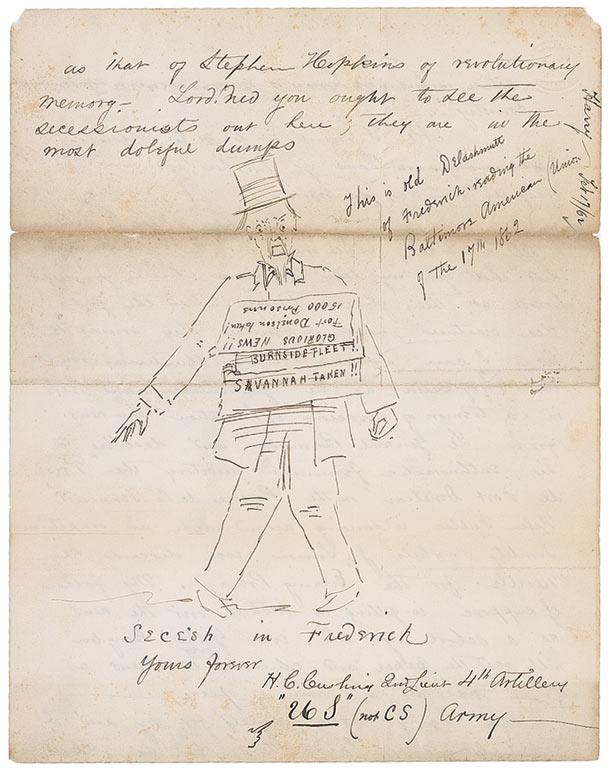 as that of Stephen Hopkins of revolutionary
memory – Lord! Ned you ought to see the
secessionists out here; they are in the
most doleful dumps
This is old Delashmutt
of Frederick reading the
Baltimore American (Union
of the 17th 1862
15000 Prisoners
Fort Donelson taken!
GLORIOUS NEWS!!
BURNSIDE FLEET!!
SAVANNAH TAKEN!!
Secesh in Frederick
Yours forever
H. C. Cushing 2nd Lieut 4th Artillery
"US" (not CS) Army